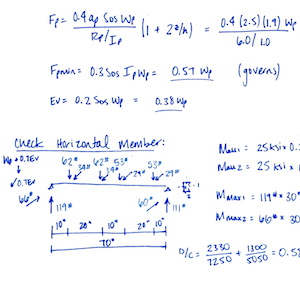 Fp = 0.4 ap Sds Wp / Rp/Ip (1 + 2 z/h) = 0.4 (2.5)(1.9) Wp / 6.0/1.0
Fpmin = 0.3 Sds Ip Wp = 0.57 Wp (governs)
Ev = 0.2 Sds Wp = 0.38 Wp
Check Horizontal Member:
Wp + 0.7Ev
0.7Ev
62# 39# 62# 39# 53# 29# 53# 29#
66# 119# 60# 111#
10" 20" 10" 20" 10"
70"
Mall1 = 25 ksi x 0.
Mall2 = 25 ksi x
Mmax1 = 119# x 30"
Mmax2 = 66# x 30
D/C = 2330/7250 + 1300/5050 = 0.5